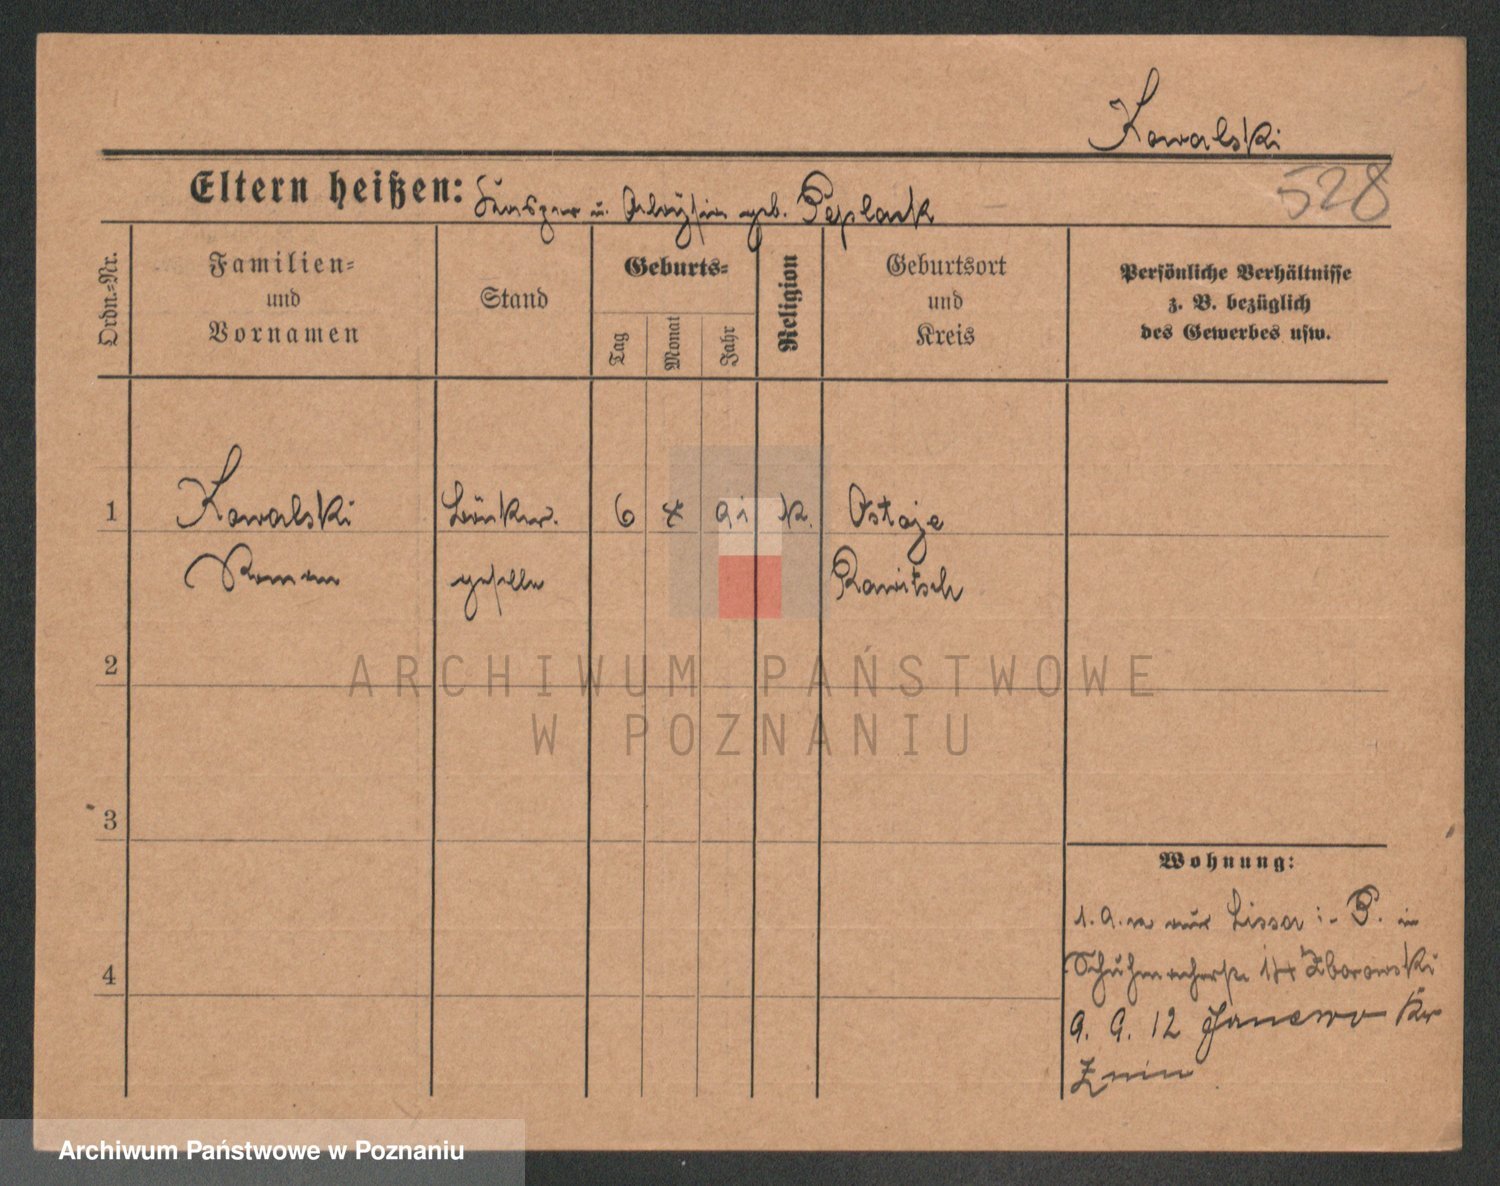 Kowalski
528
Eltern heißen: u. geb. Peplack
Ordn.-Nr.
Familien-
und
Vornamen
Stand
Geburts-
Tag
Monat
Jahr
Religion
Geburtsort
und
Kreis
Persönliche Verhältnisse
z. B. bezüglich
des Gewerbes usw.
1 Kowalski 6 k. Ostoje
Roman geselle Rawitsch
2
3
4
Wohnung:
aus Lissa i. P. in
Schuhmacherstr 14 Zborowski
9. 9. 12 Janowo Kr
Znin
ARCHIWUM PAŃSTWOWE
W POZNANIU
Archiwum Państwowe w Poznaniu